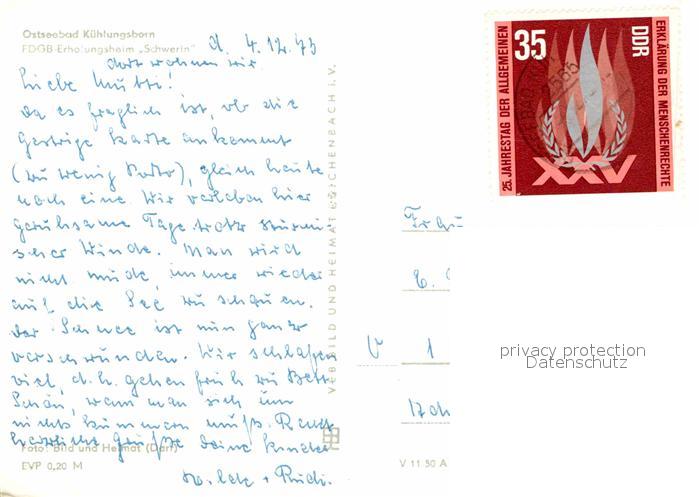 Ostseebad Kühlungsborn
FDGB-Erholungsheim „Schwerin"
d. 4.12.73
dort wohnen wir
Liebe Mutti!
Da es fraglich ist, ob die
gestrige Karte ankommt
(zu wenig Porto), gleich heute
noch eine. Wir verleben hier
geruhsame Tage trotz stürmi
scher Winde. Man wird
nicht müde, immer wieder
auf die See zu schauen.
Der Schnee ist nun ganz
verschwunden. Wir schlafen
viel, d.h. gehen früh zu Bett.
Schön, wenn man sich um
nichts kümmern muß. Recht
herzliche Grüße Deine Kinder
+ Rudi.
Foto: Bild und Heimat (Darr)
EVP 0,20 M
V 11 50 A
VEB BILD UND HEIMAT REICHENBACH i. V.
35
DDR
25. JAHRESTAG DER ALLGEMEINEN
ERKLÄRUNG DER MENSCHENRECHTE
XXV
2565
Frau
V 1
privacy protection
Datenschutz